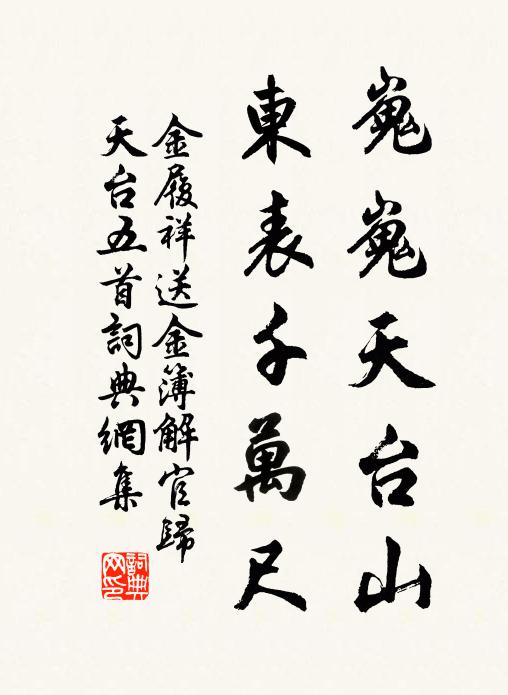 嵬嵬天台山
東表千萬尺
金履祥送金簿解官歸
天台五首詞典網集
詞典網印